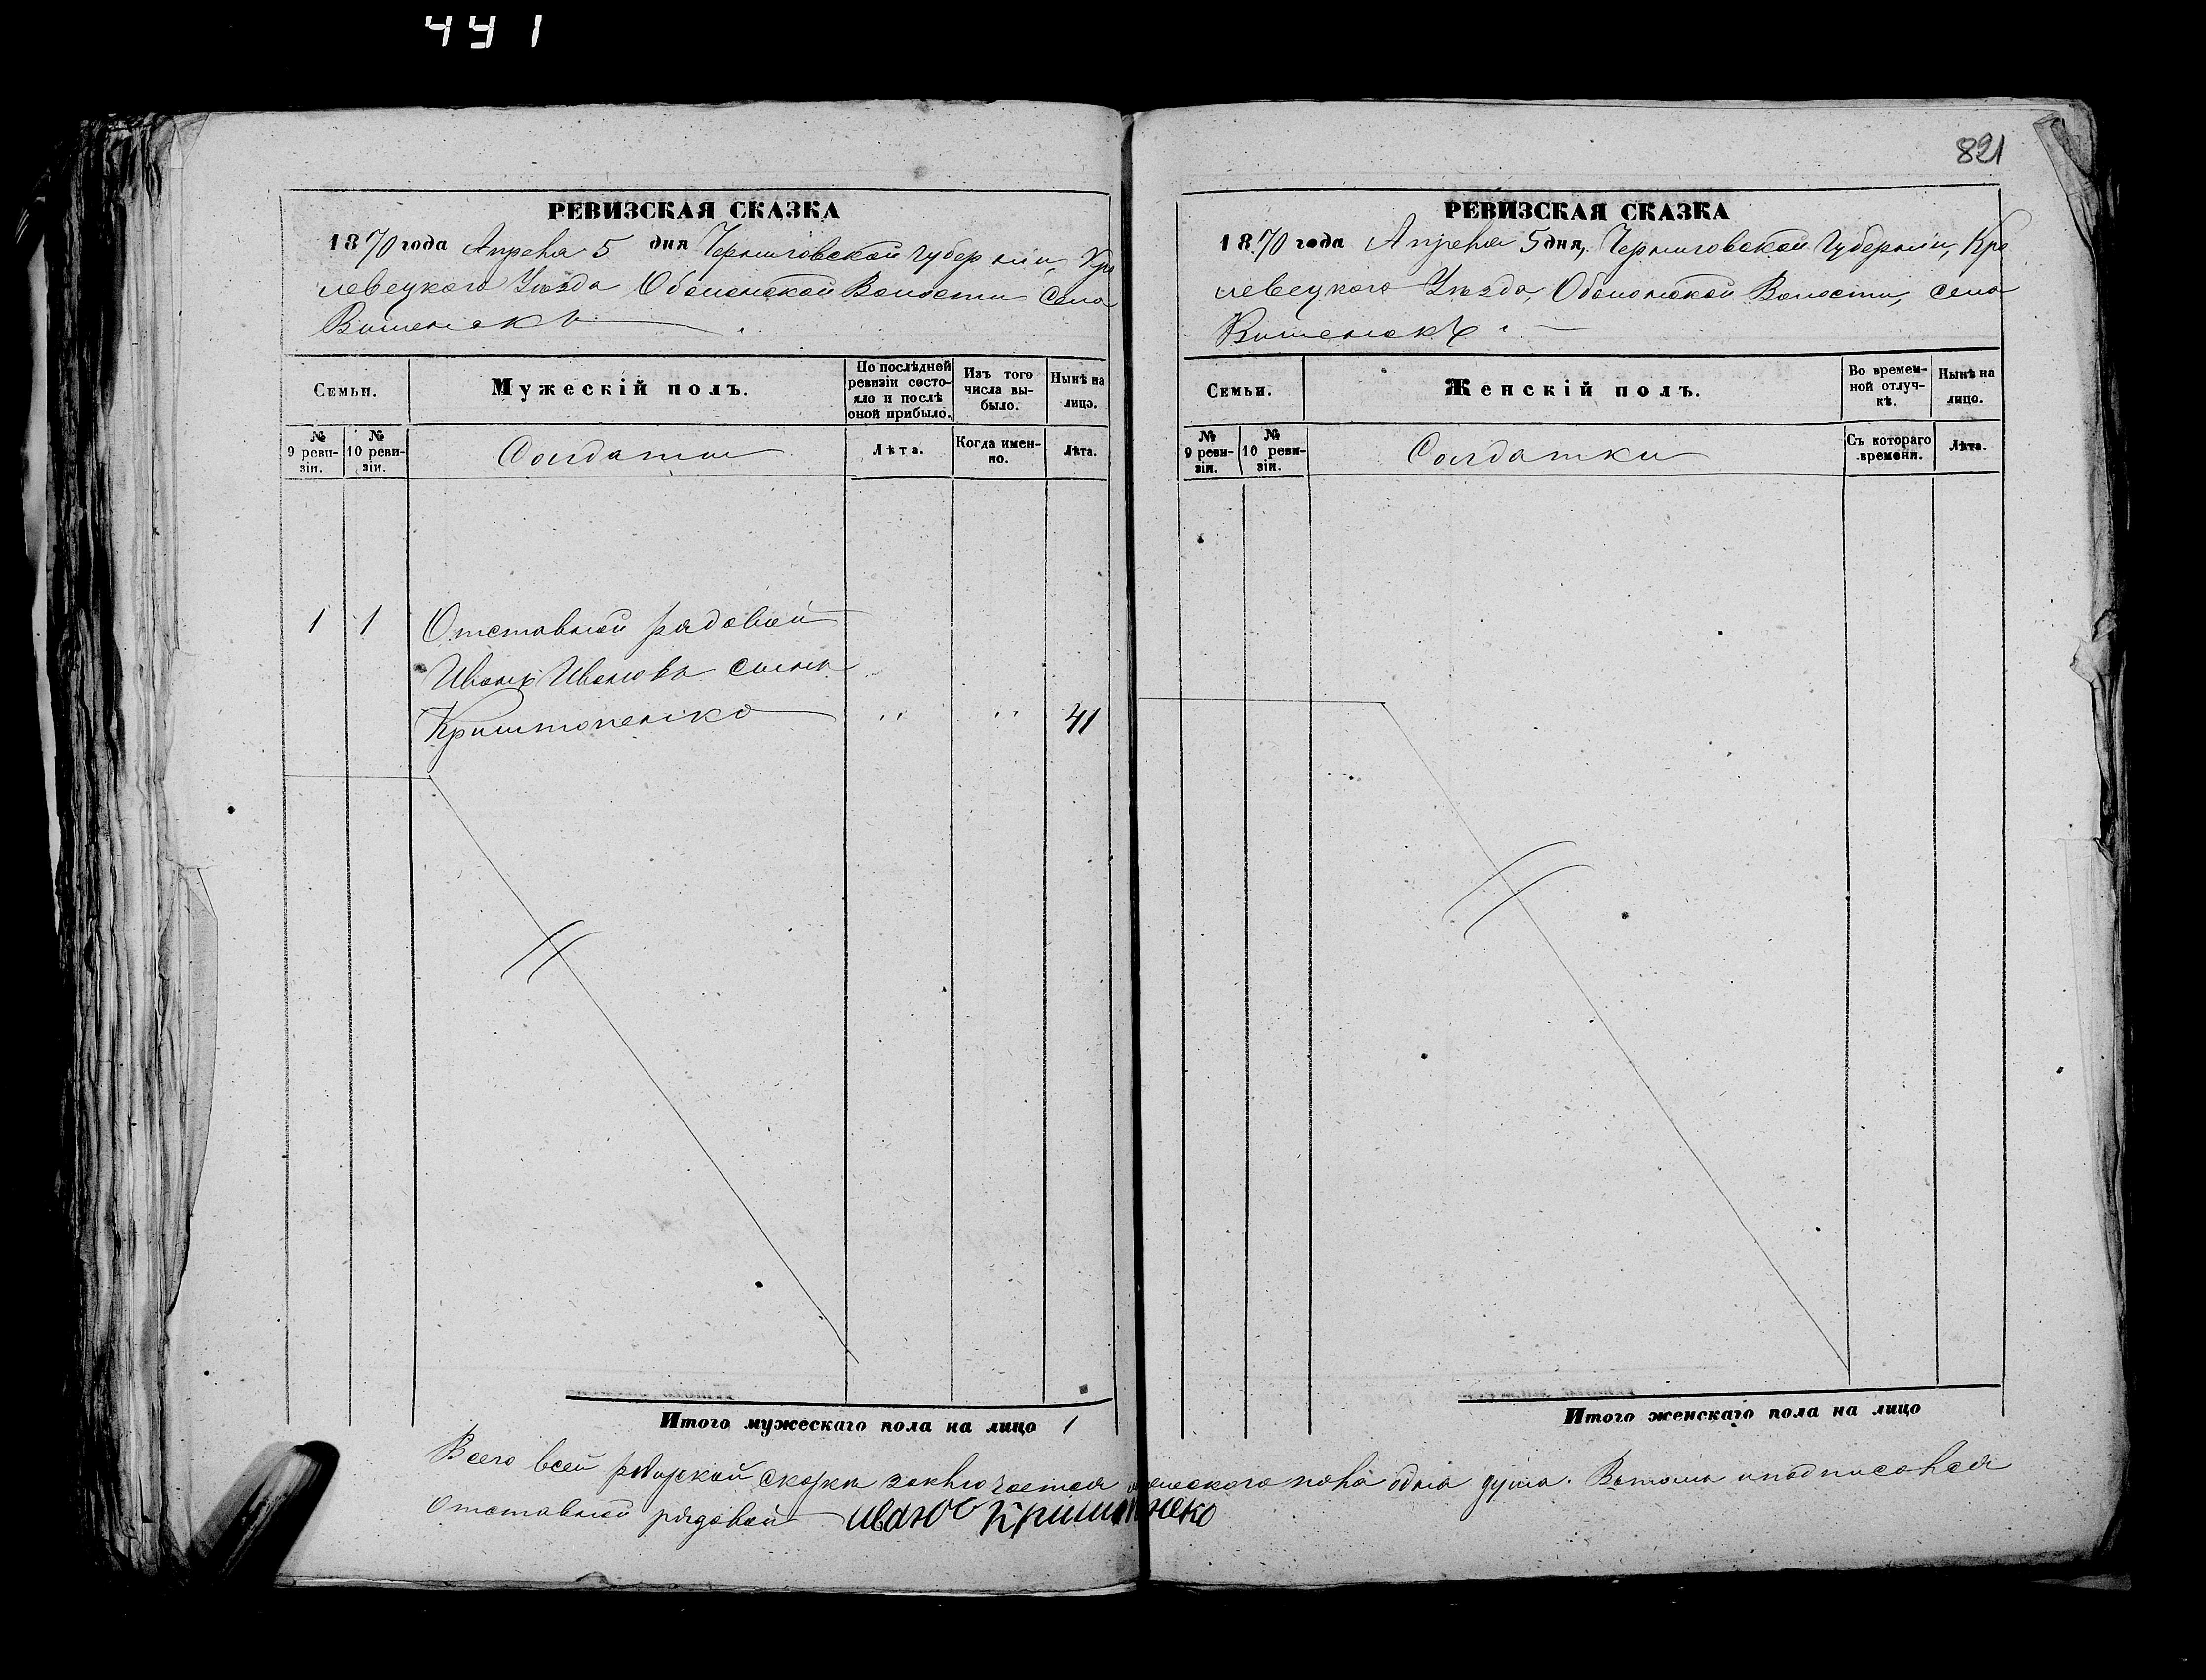 441
821
РЕВИЗСКАЯ СКАЗКА
1870 года Апреля 5 дня Черниговской Губерніи, Кро
левецкого Уѣзда Оболонской Волости Села
Вишенокъ
Семьи.
Мужескій полъ.
По послѣдней ревизіи состояло и послѣ оной прибыло.
Изъ того числа выбыло.
Нынѣ на лицо.
№ 9 ревизіи.
№ 10 ревизіи.
Солдаты
Лѣта.
Когда именно.
Лѣта.
1 1 Отставный рядовый
Иванъ Ивановъ сынъ
Криштопенко " " 41
Итого мужескаго пола на лицо 1
РЕВИЗСКАЯ СКАЗКА
1870 года Апреля 5 дня, Черниговской Губерніи, Кро
левецкого Уѣзда, Оболонской Волости, села
Вишенокъ.
Семьи.
Женскій полъ.
Во временной отлучкѣ.
Нынѣ на лицо.
№ 9 ревизіи.
№ 10 ревизіи.
Солдатки
Съ котораго времени.
Лѣта.
Итого женскаго пола на лицо
Всего всей сказки заключается пола одна душа. Вътомъ иподписался
Отставный рядовый